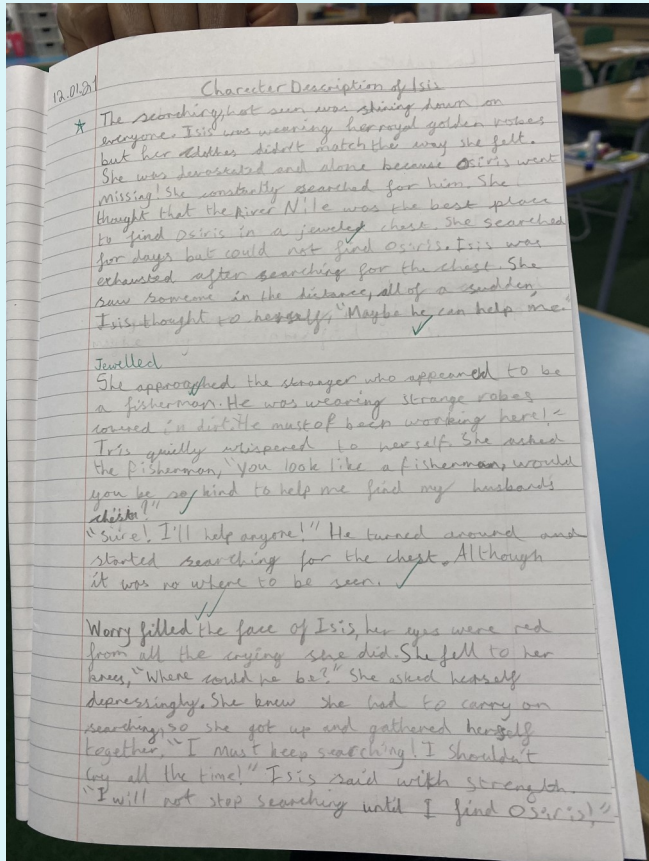 12.01.21
Character Description of Isis
The scorching, hot sun was shining down on
everyone. Isis was wearing her royal golden robes
but her clothes didn't match the way she felt.
She was devastated and alone because Osiris went
missing! She constantly searched for him. She
thought that the River Nile was the best place
to find Osiris in a jeweled chest. She searched
for days but could not find Osiris. Isis was
exhausted after searching for the chest. She
saw someone in the distance, all of a sudden.
Isis, thought to herself, "Maybe he can help me."
Jewelled
She approached the stranger who appeared to be
a fisherman. He was wearing strange robes
covered in dirt. He must of been working here!
Isis quielly whispered to herself. She asked
the fisherman, "You look like a fisherman, would
you be so kind to help me find my husbands
chest?"
"Sure! I'll help anyone!" He turned around and
started searching for the chest. Although
it was no where to be seen.
Worry filled the face of Isis, her eyes were red
from all the crying she did. She fell to her
knees, "Where could he be?" She asked herself
depressingly. She knew she had to carry on
searching, so she got up and gathered herself
together, "I must keep searching! I shouldn't
cry all the time!" Isis said with strength.
"I will not stop searching until I find Osiris!"